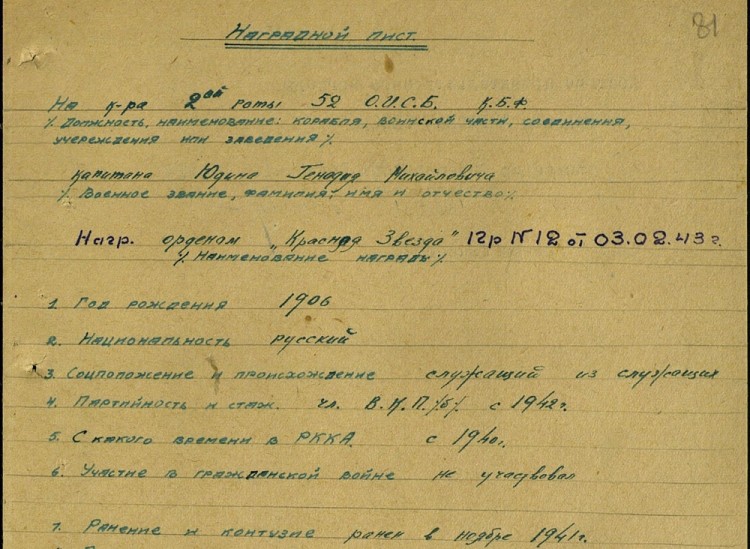 81
Наградной лист.
На к-ра 2ой роты 52 О.И.С.Б. К.Б.Ф.
/. Должность, наименование: корабля, воинской части, соединения,
учереждения или заведения /.
капитана Юдина Генадия Михайловича
/. Военное звание, фамилия, имя и отчество /.
Нагр. орденом „Красная Звезда" Пр № 12 от 03.02.43 г.
/. Наименование награды /.
1. Год рождения 1906
2. Национальность русский
3. Соцположение и происхождение служащий из служащих
4. Партийность и стаж. чл. В.К.П./б/. с 1942 г.
5. С какого времени в РККА. с 1940 г.
6. Участие в гражданской войне не участвовал
7. Ранение и контузие ранен в ноябре 1941 г.